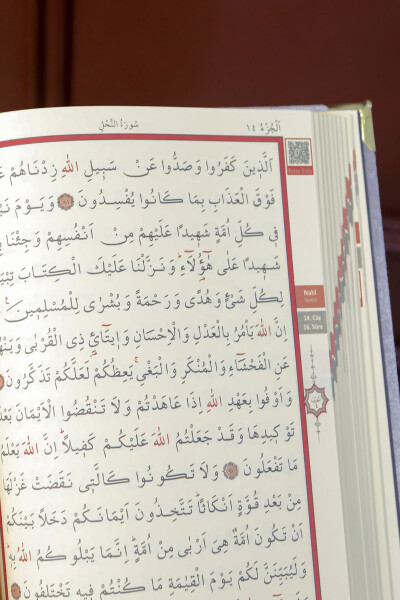 اَلْجُزْءُ ١٤
سُورَةُ النَّحْلِ
اَلَّذِينَ كَفَرُوا وَصَدُّوا عَنْ سَبِيلِ اللّٰهِ زِدْنَاهُمْ
فَوْقَ الْعَذَابِ بِمَا كَانُوا يُفْسِدُونَ وَيَوْمَ
فِى كُلِّ اُمَّةٍ شَهِيدًا عَلَيْهِمْ مِنْ اَنْفُسِهِمْ وَجِئْنَا
شَهِيدًا عَلٰى هٰٓؤُ۬لَٓاءِ وَنَزَّلْنَا عَلَيْكَ الْكِتَابَ
لِكُلِّ شَيْءٍ وَهُدًى وَرَحْمَةً وَبُشْرٰى لِلْمُسْلِمِينَ
اِنَّ اللّٰهَ يَأْمُرُ بِالْعَدْلِ وَالْاِحْسَانِ وَاِيتَٓائِ ذِى الْقُرْبٰى
عَنِ الْفَحْشَٓاءِ وَالْمُنْكَرِ وَالْبَغْىِ يَعِظُكُمْ لَعَلَّكُمْ تَذَكَّرُونَ
وَاَوْفُوا بِعَهْدِ اللّٰهِ اِذَا عَاهَدْتُمْ وَلَا تَنْقُضُوا الْاَيْمَانَ
تَوْكِيدِهَا وَقَدْ جَعَلْتُمُ اللّٰهَ عَلَيْكُمْ كَفِيلًا اِنَّ اللّٰهَ يَعْلَمُ
مَا تَفْعَلُونَ وَلَا تَكُونُوا كَالَّتِى نَقَضَتْ غَزْلَهَا
مِنْ بَعْدِ قُوَّةٍ اَنْكَاثًا تَتَّخِذُونَ اَيْمَانَكُمْ دَخَلًا بَيْنَكُمْ
اَنْ تَكُونَ اُمَّةٌ هِىَ اَرْبٰى مِنْ اُمَّةٍ اِنَّمَا يَبْلُوكُمُ اللّٰهُ بِهِ
وَلَيُبَيِّنَنَّ لَكُمْ يَوْمَ الْقِيٰمَةِ مَا كُنْتُمْ فِيهِ تَخْتَلِفُونَ
Nahl
Suresi
14. Cüz
16. Sûre